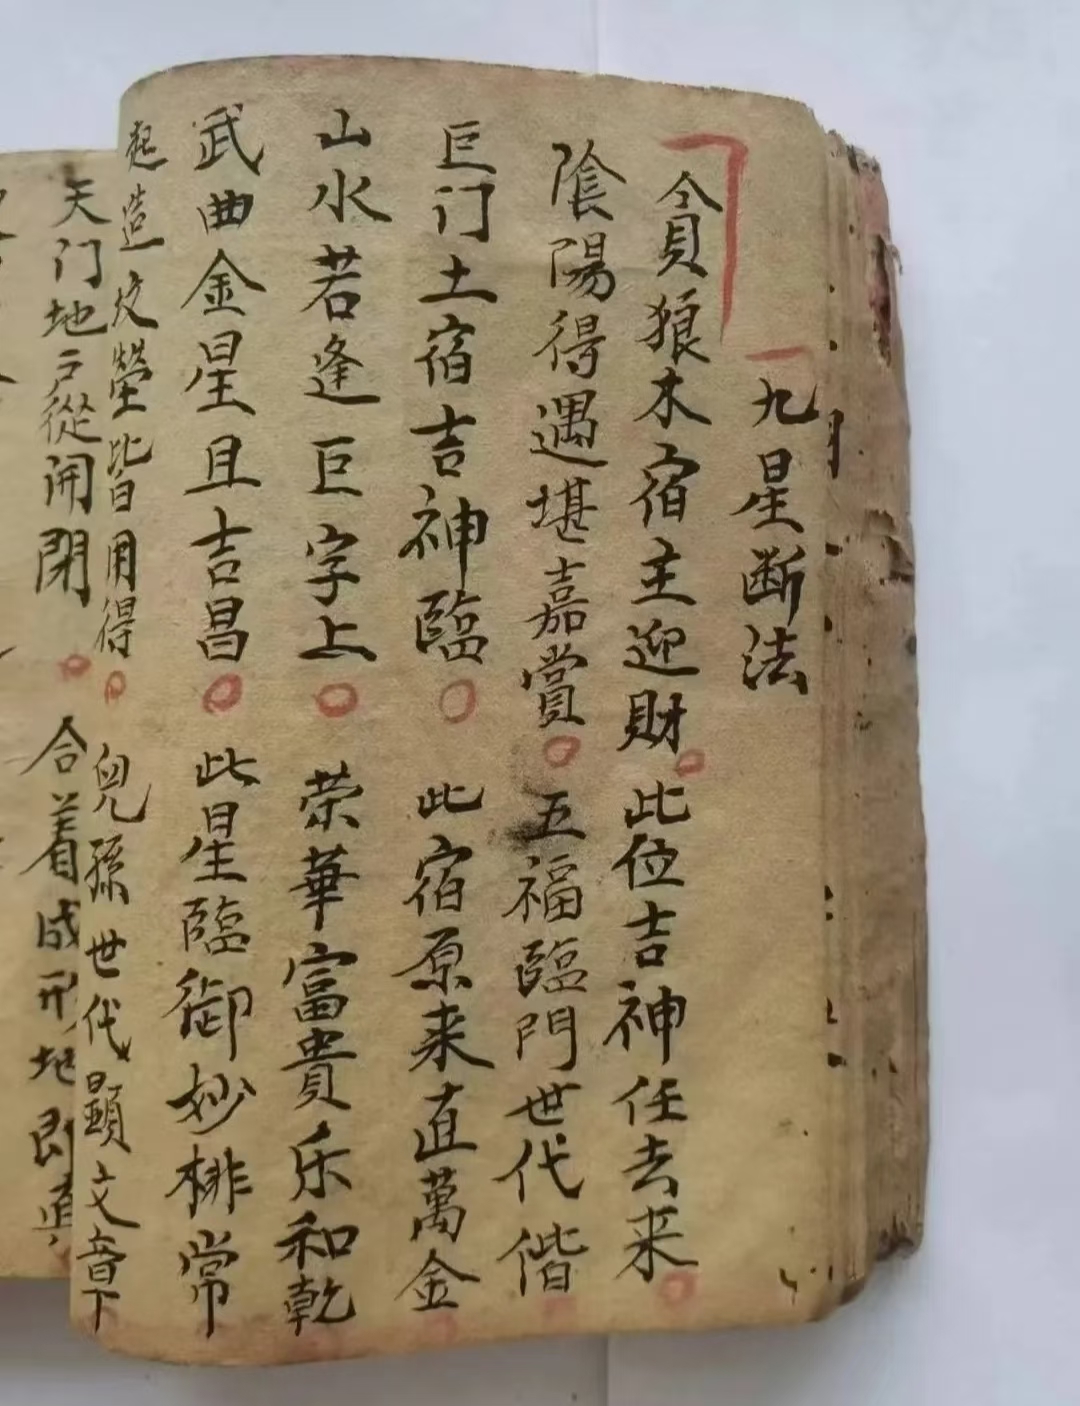 九星断法
貪狼木宿主迎財。此位吉神任去来。
陰陽得遇堪嘉賞。五福臨門世代偕
巨门土宿吉神臨。此宿原来直萬金
山水若逢巨字上。荣華富貴乐和乾
武曲金星且吉昌。此星臨御妙排常
起造坟塋皆用得。兒孫世代顕文章
天门地户從開閉。合着成形地即真